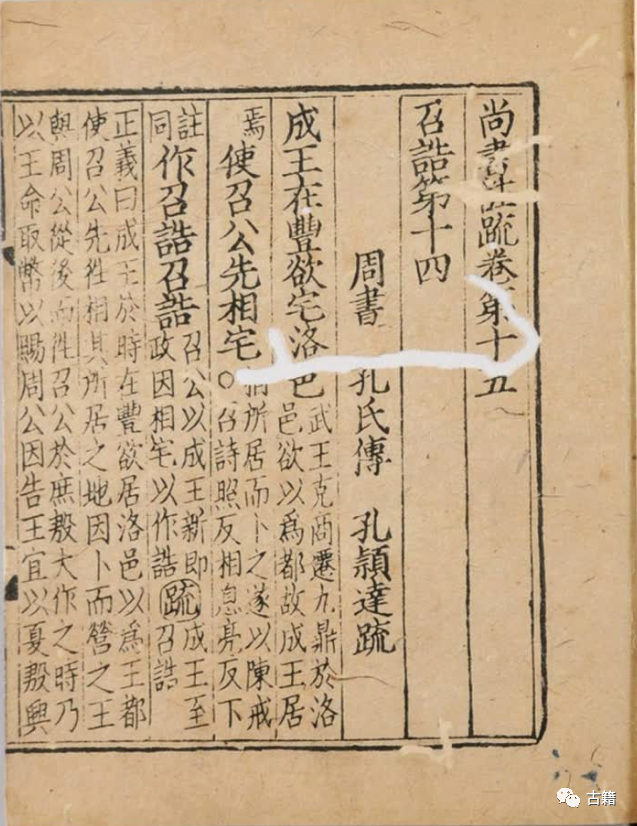 尚書註疏卷第十五
召誥第十四
周書 孔氏傳 孔頴達疏
成王在豐欲宅洛邑
武王克商遷九鼎於洛
邑欲以為都故成王居
焉
使召公先相宅
相所居而卜之遂以陳戒
○召詩照反相息亮反下
註
同
作召誥召誥
召公以成王新即
政因相宅以作誥
疏
成王至
召誥
正義曰成王於時在豐欲居洛邑以為王都
使召公先往相其所居之地因卜而營之王
與周公從後而往召公於庶殷大作之時乃
以王命取幣以賜周公因告王宜以夏殷興
古籍